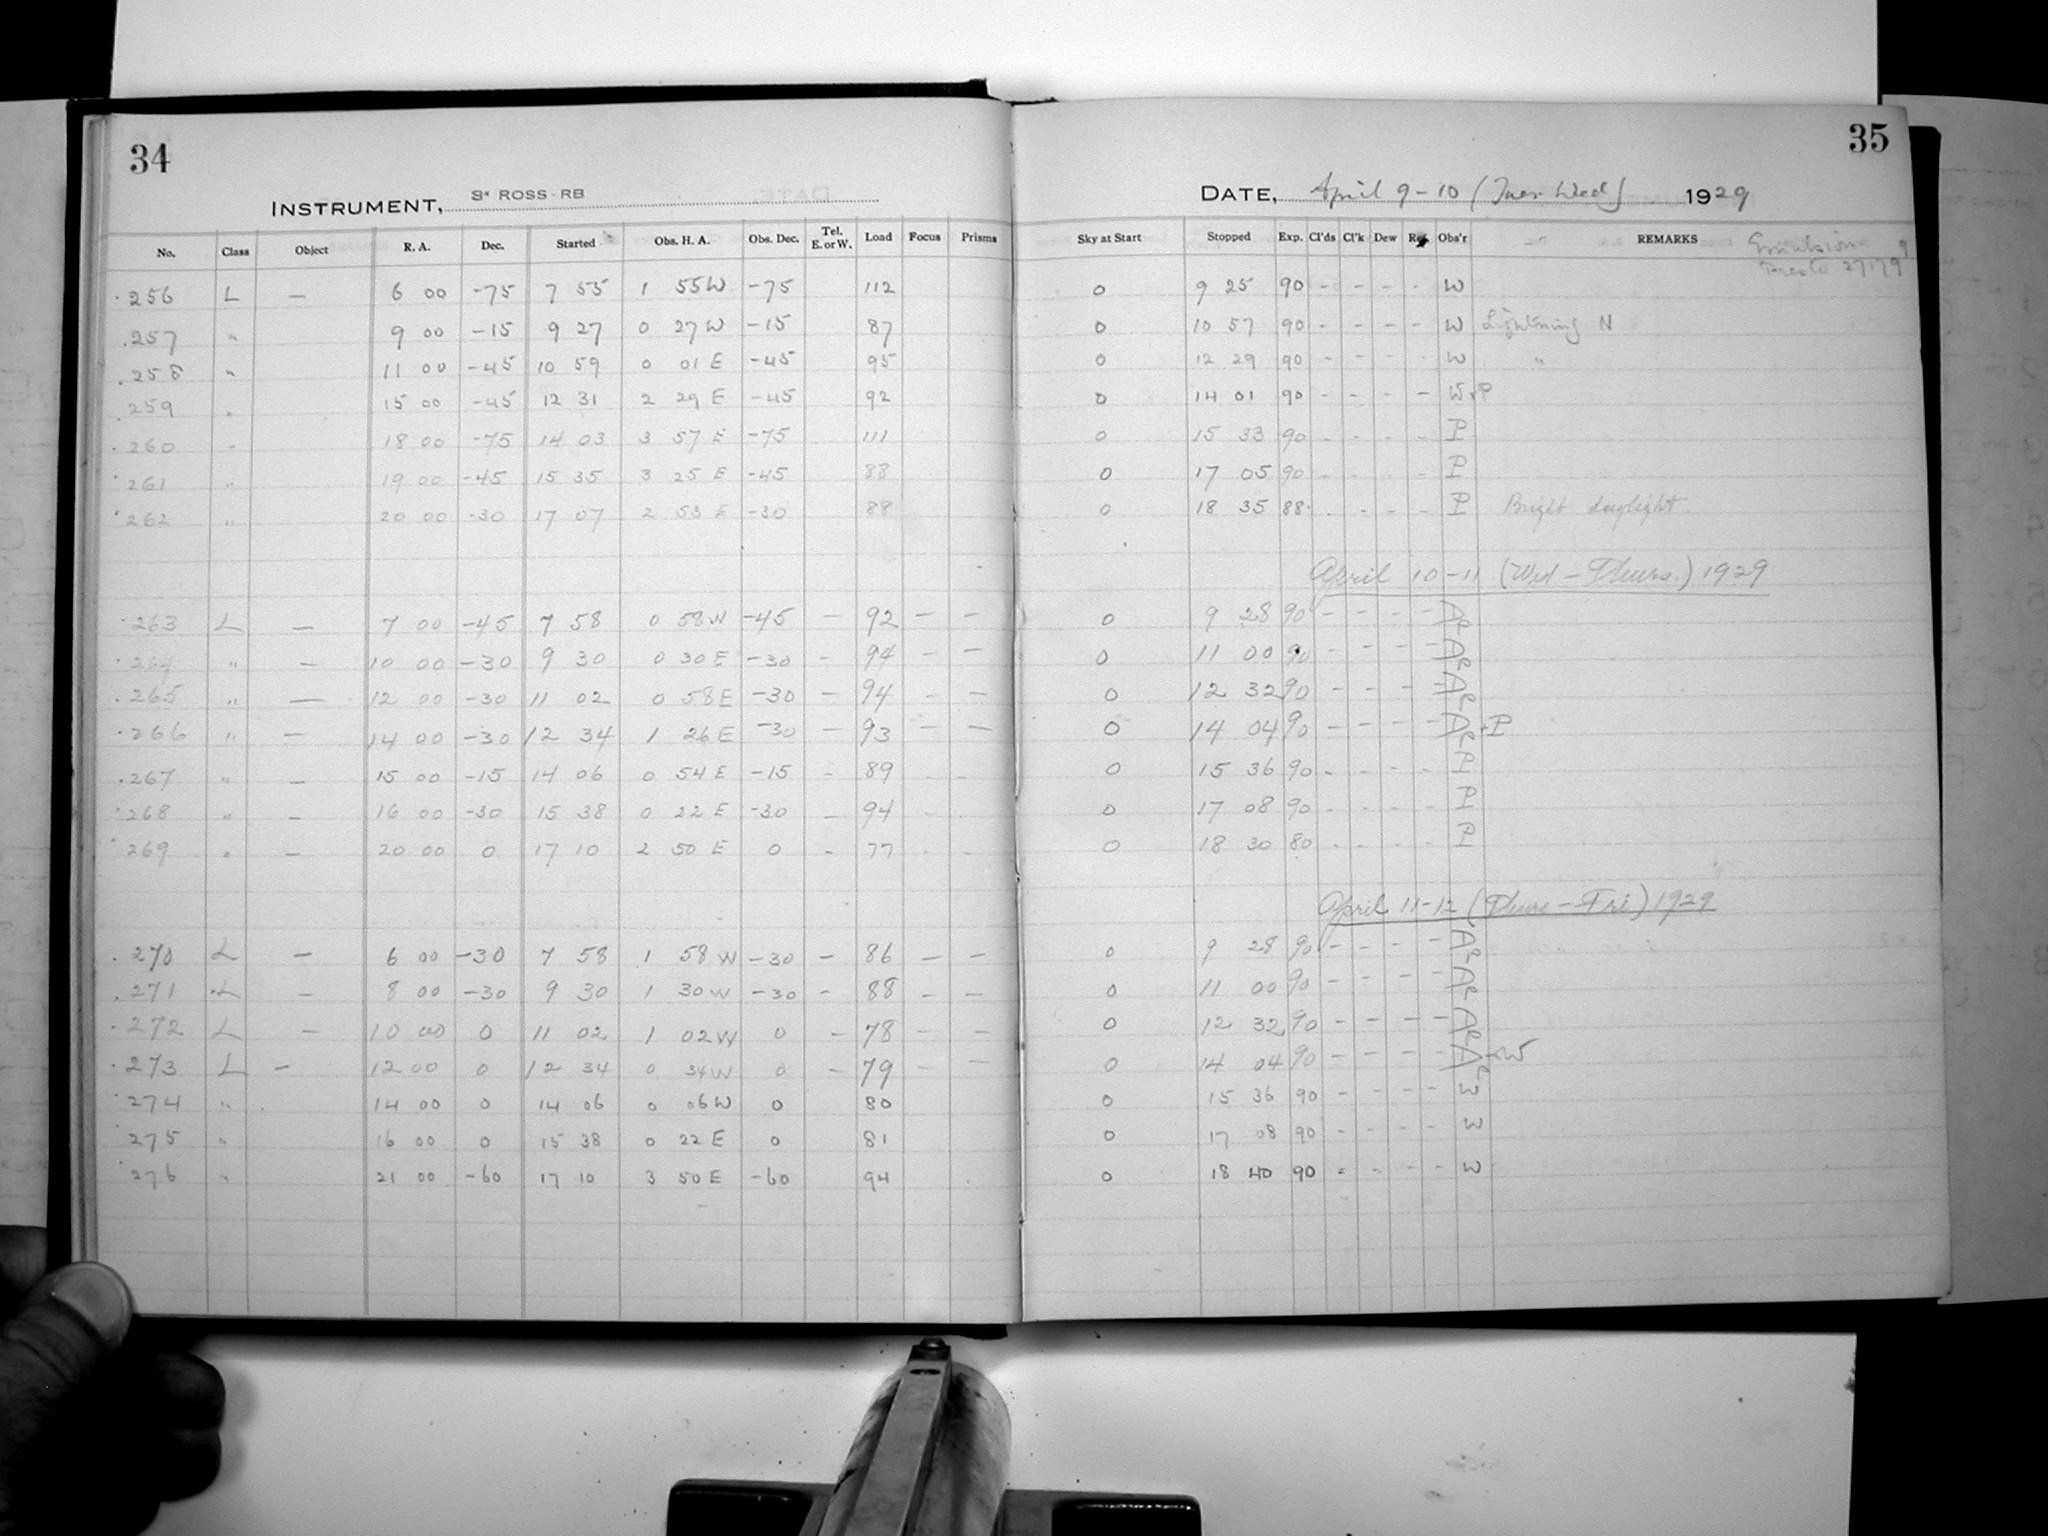 34
INSTRUMENT, 3" ROSS-RB
No. Class Object R. A. Dec. Started Obs. H. A. Obs. Dec. Tel. E. or W. Load Focus Prisms
256 L — 6 00 -75 7 55 1 55 W -75 112
257 " 9 00 -15 9 27 0 27 W -15 87
258 " 11 00 -45 10 59 0 01 E -45 95
259 " 15 00 -45 12 31 2 29 E -45 92
260 " 18 00 -75 14 03 3 57 E -75 111
261 " 19 00 -45 15 35 3 25 E -45 88
262 " 20 00 -30 17 07 2 53 E -30 88
263 L — 7 00 -45 7 58 0 58 W -45 — 92 — —
264 " — 10 00 -30 9 30 0 30 E -30 — 94 — —
265 " — 12 00 -30 11 02 0 58 E -30 — 94 — —
266 " — 14 00 -30 12 34 1 26 E -30 — 93 — —
267 " — 15 00 -15 14 06 0 54 E -15 - 89 - -
268 " — 16 00 -30 15 38 0 22 E -30 - 94 - -
269 " — 20 00 0 17 10 2 50 E 0 - 77 - -
270 L — 6 00 -30 7 58 1 58 W -30 — 86 — —
271 L — 8 00 -30 9 30 1 30 W -30 — 88 — —
272 L — 10 00 0 11 02 1 02 W 0 — 78 — —
273 L — 12 00 0 12 34 0 34 W 0 — 79 — —
274 " 14 00 0 14 06 0 06 W 0 80
275 " 16 00 0 15 38 0 22 E 0 81
276 " 21 00 -60 17 10 3 50 E -60 94
35
DATE, April 9-10 (Tues Wed) 1929
Sky at Start Stopped Exp. Cl'ds Cl'k Dew Obs'r REMARKS Emulsion
0 9 25 90 - - - - W
0 10 57 90 - - - - W Lightning N
0 12 29 90 - - - - W "
0 14 01 90 - - - - W+P
0 15 33 90 - - - - P
0 17 05 90 - - - - P
0 18 35 88 - - - - P Bright daylight.
April 10-11 (Wed - Thurs.) 1929
0 9 28 90 - - - - AR
0 11 00 90 - - - - AR
0 12 32 90 - - - - AR
0 14 04 90 - - - - AR+P
0 15 36 90 - - - - P
0 17 08 90 - - - - P
0 18 30 80 - - - - P
April 11-12 (Thurs - Fri) 1929
0 9 28 90 - - - - AR
0 11 00 90 - - - - AR
0 12 32 90 - - - - AR
0 14 04 90 - - - - AR+W
0 15 36 90 - - - - W
0 17 08 90 - - - - W
0 18 40 90 - - - - W